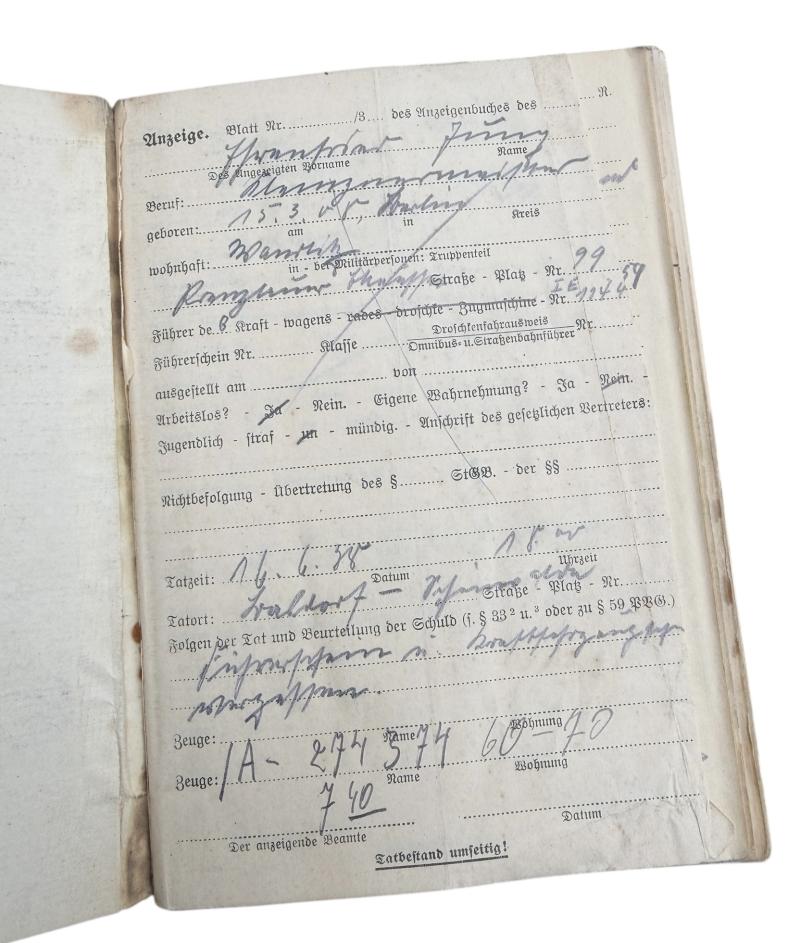 Anzeige. Blatt Nr. /3 des Anzeigenbuches des R.
Jung
Des Angezeigten Vorname Name
Beruf: Klempnermeister
geboren: 15.3.05, Berlin
am in Kreis
wohnhaft: Wandlitz
in - bei Militärpersonen: Truppenteil
Prenzlauer Straße - Platz - Nr. 99
Führer des Kraft - wagens - rades - droschke - Zugmaschine - Nr. IE
Führerschein Nr. Klasse Droschkenfahrausweis Nr.
Omnibus- u. Straßenbahnführer
ausgestellt am von
Arbeitslos? - Ja - Nein. - Eigene Wahrnehmung? - Ja - Nein. -
Jugendlich - straf - un - mündig. - Anschrift des gesetzlichen Vertreters:
Nichtbefolgung - Übertretung des § StGB. - der §§
Tatzeit: 16.6.38 18.
Datum Uhrzeit
Tatort: Straße - Platz - Nr.
Folgen der Tat und Beurteilung der Schuld (s. § 33² u.³ oder zu § 59 PVG.)
Führerschein u.
vergessen.
Zeuge:
Name Wohnung
Zeuge: IA - 274 374 60-70
Name Wohnung
7 40
Der anzeigende Beamte Datum
Tatbestand umseitig!